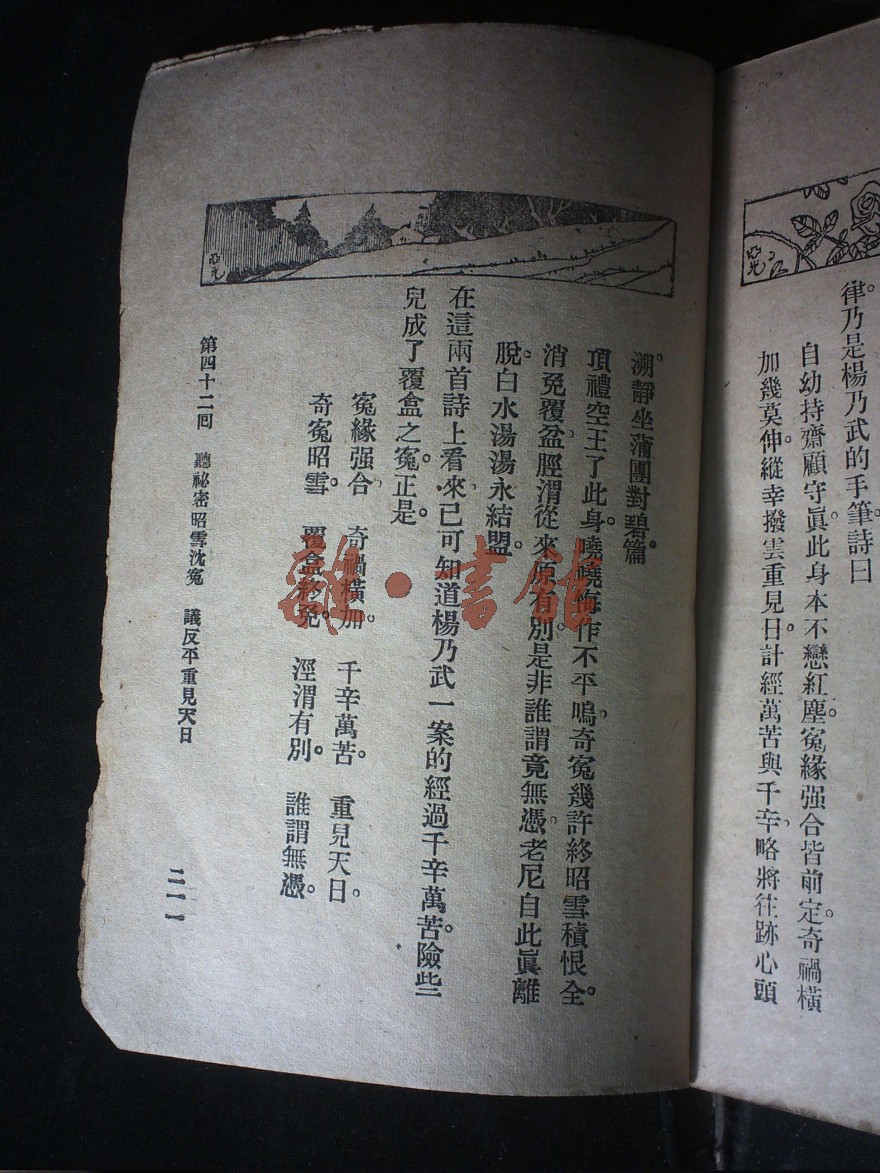 律。乃是楊乃武的手筆。詩曰
自幼持齋顧守眞。此身本不戀紅塵。寃緣强合皆前定。奇禍橫
加幾莫伸。縱幸撥雲重見日。計經萬苦與千辛。略將往跡心頭
溯。靜坐蒲團對碧篇。
頂禮空王了此身。嘵嘵悔作不平鳴。奇寃幾許終昭雪。積恨全
消免覆盆。脛渭從來原有別。是非誰謂竟無憑。老尼自此眞離
脫。白水湯湯永結盟。
在這兩首詩上看來。已可知道楊乃武一案的經過千辛萬苦。險些
兒成了覆盒之寃。正是。
寃緣强合。 奇禍橫加。 千辛萬苦。 重見天日。
奇寃昭雪。 覆盒終免。 涇渭有別。 誰謂無憑。
第四十二囘 聽祕密昭雪沈寃 議反平重見天日
二一一
亞光
亞光
雜·書館